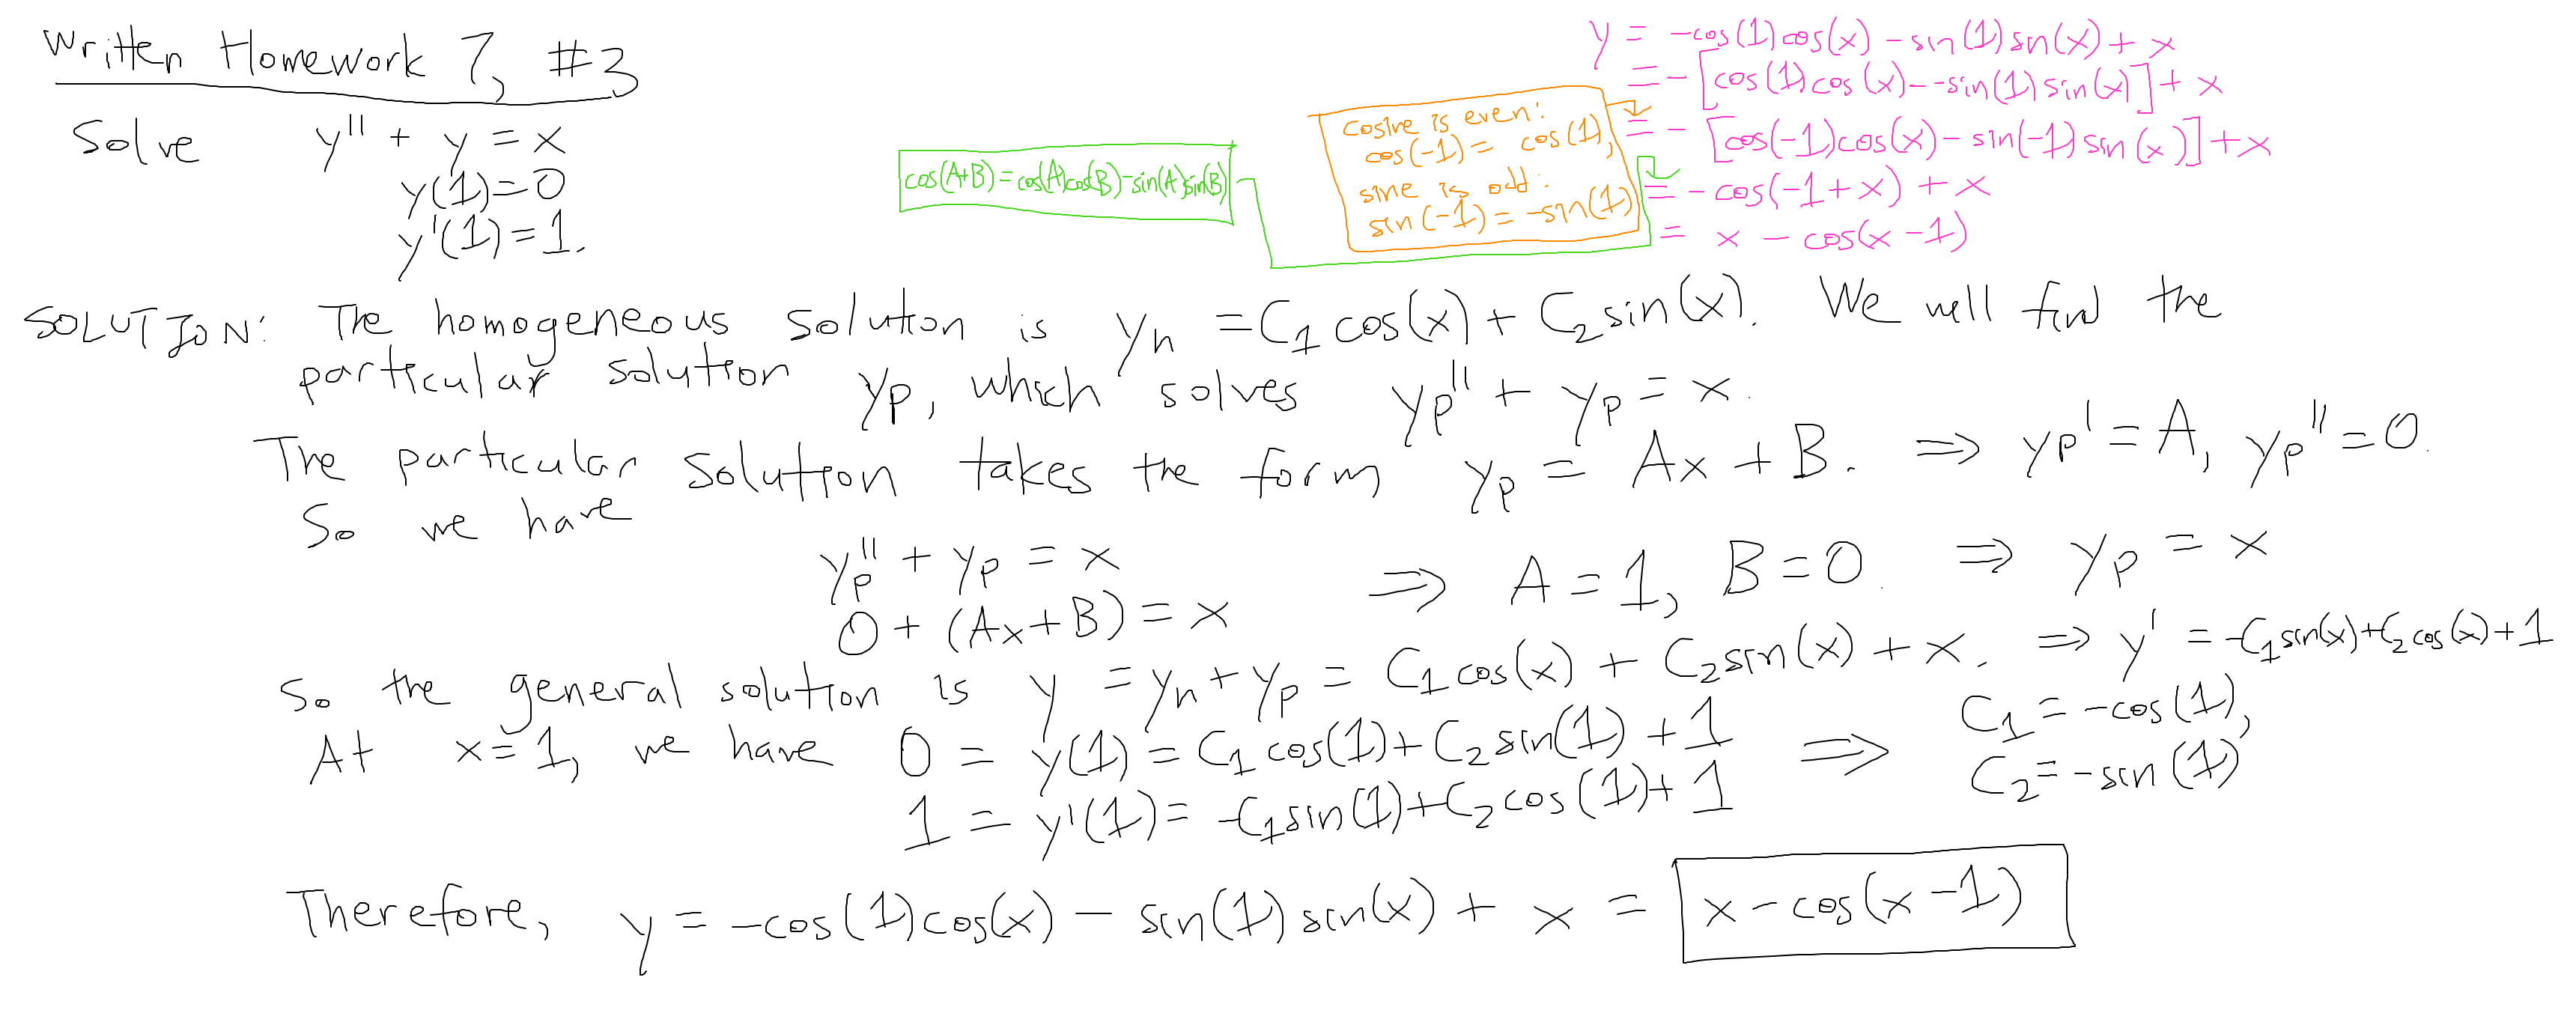 Written Homework 7, #3
Solve y'' + y = x
y(1)=0
y'(1)=1.
cos(A+B)=cos(A)cos(B)-sin(A)sin(B)
cosine is even:
cos(-1) = cos(1),
sine is odd:
sin(-1) = -sin(1)
y = -cos(1)cos(x) - sin(1)sin(x) + x
= -[cos(1)cos(x) - -sin(1)sin(x)] + x
= -[cos(-1)cos(x) - sin(-1)sin(x)] + x
= -cos(-1+x) + x
= x - cos(x-1)
SOLUTION: The homogeneous solution is yh = C1 cos(x) + C2 sin(x). We will find the
particular solution yp, which solves yp'' + yp = x.
The particular solution takes the form yp = Ax + B. ⇒ yp' = A, yp'' = 0.
So we have
yp'' + yp = x
0 + (Ax+B) = x ⇒ A = 1, B = 0. ⇒ yp = x
So the general solution is y = yh + yp = C1 cos(x) + C2 sin(x) + x. ⇒ y' = -C1 sin(x) + C2 cos(x) + 1
At x=1, we have 0 = y(1) = C1 cos(1) + C2 sin(1) + 1 ⇒ C1 = -cos(1),
1 = y'(1) = -C1 sin(1) + C2 cos(1) + 1 C2 = -sin(1)
Therefore, y = -cos(1)cos(x) - sin(1)sin(x) + x = x - cos(x-1)